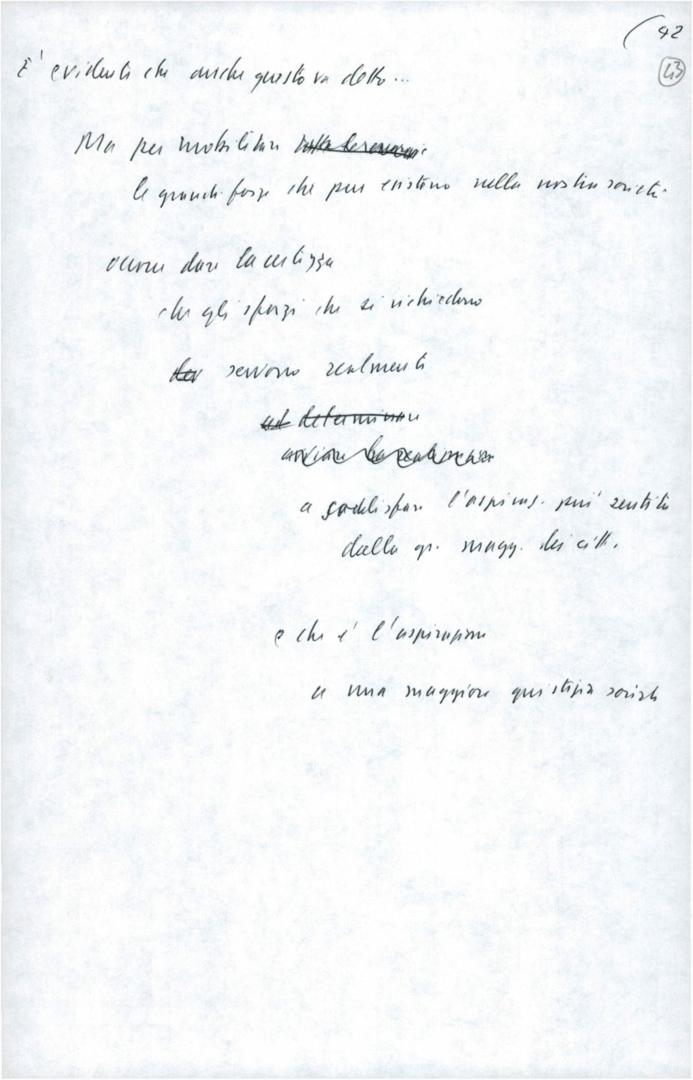 42
43
E' evidente che anche questo va detto...
Ma per mobilitare
le grandi forze che pur esistono nella nostra società
occorre dare la certezza
che gli sforzi che si richiedono
servono realmente
ad determinare
a soddisfare l'aspiraz. più sentita
dalla gr. magg. dei citt.
e che è l'aspirazione
a una maggiore giustizia sociale